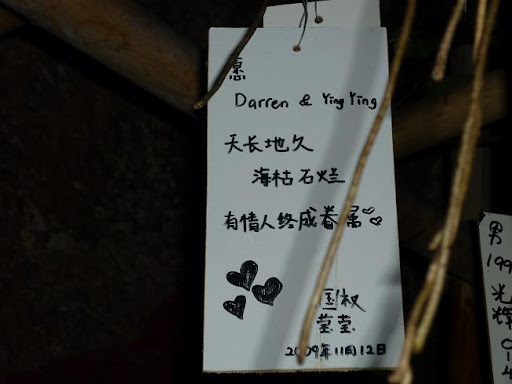 愿
Darren & Ying Ying
天长地久
海枯石烂
有情人终成眷属
国权
莹莹
2009年11月12日
男
199
光
辉